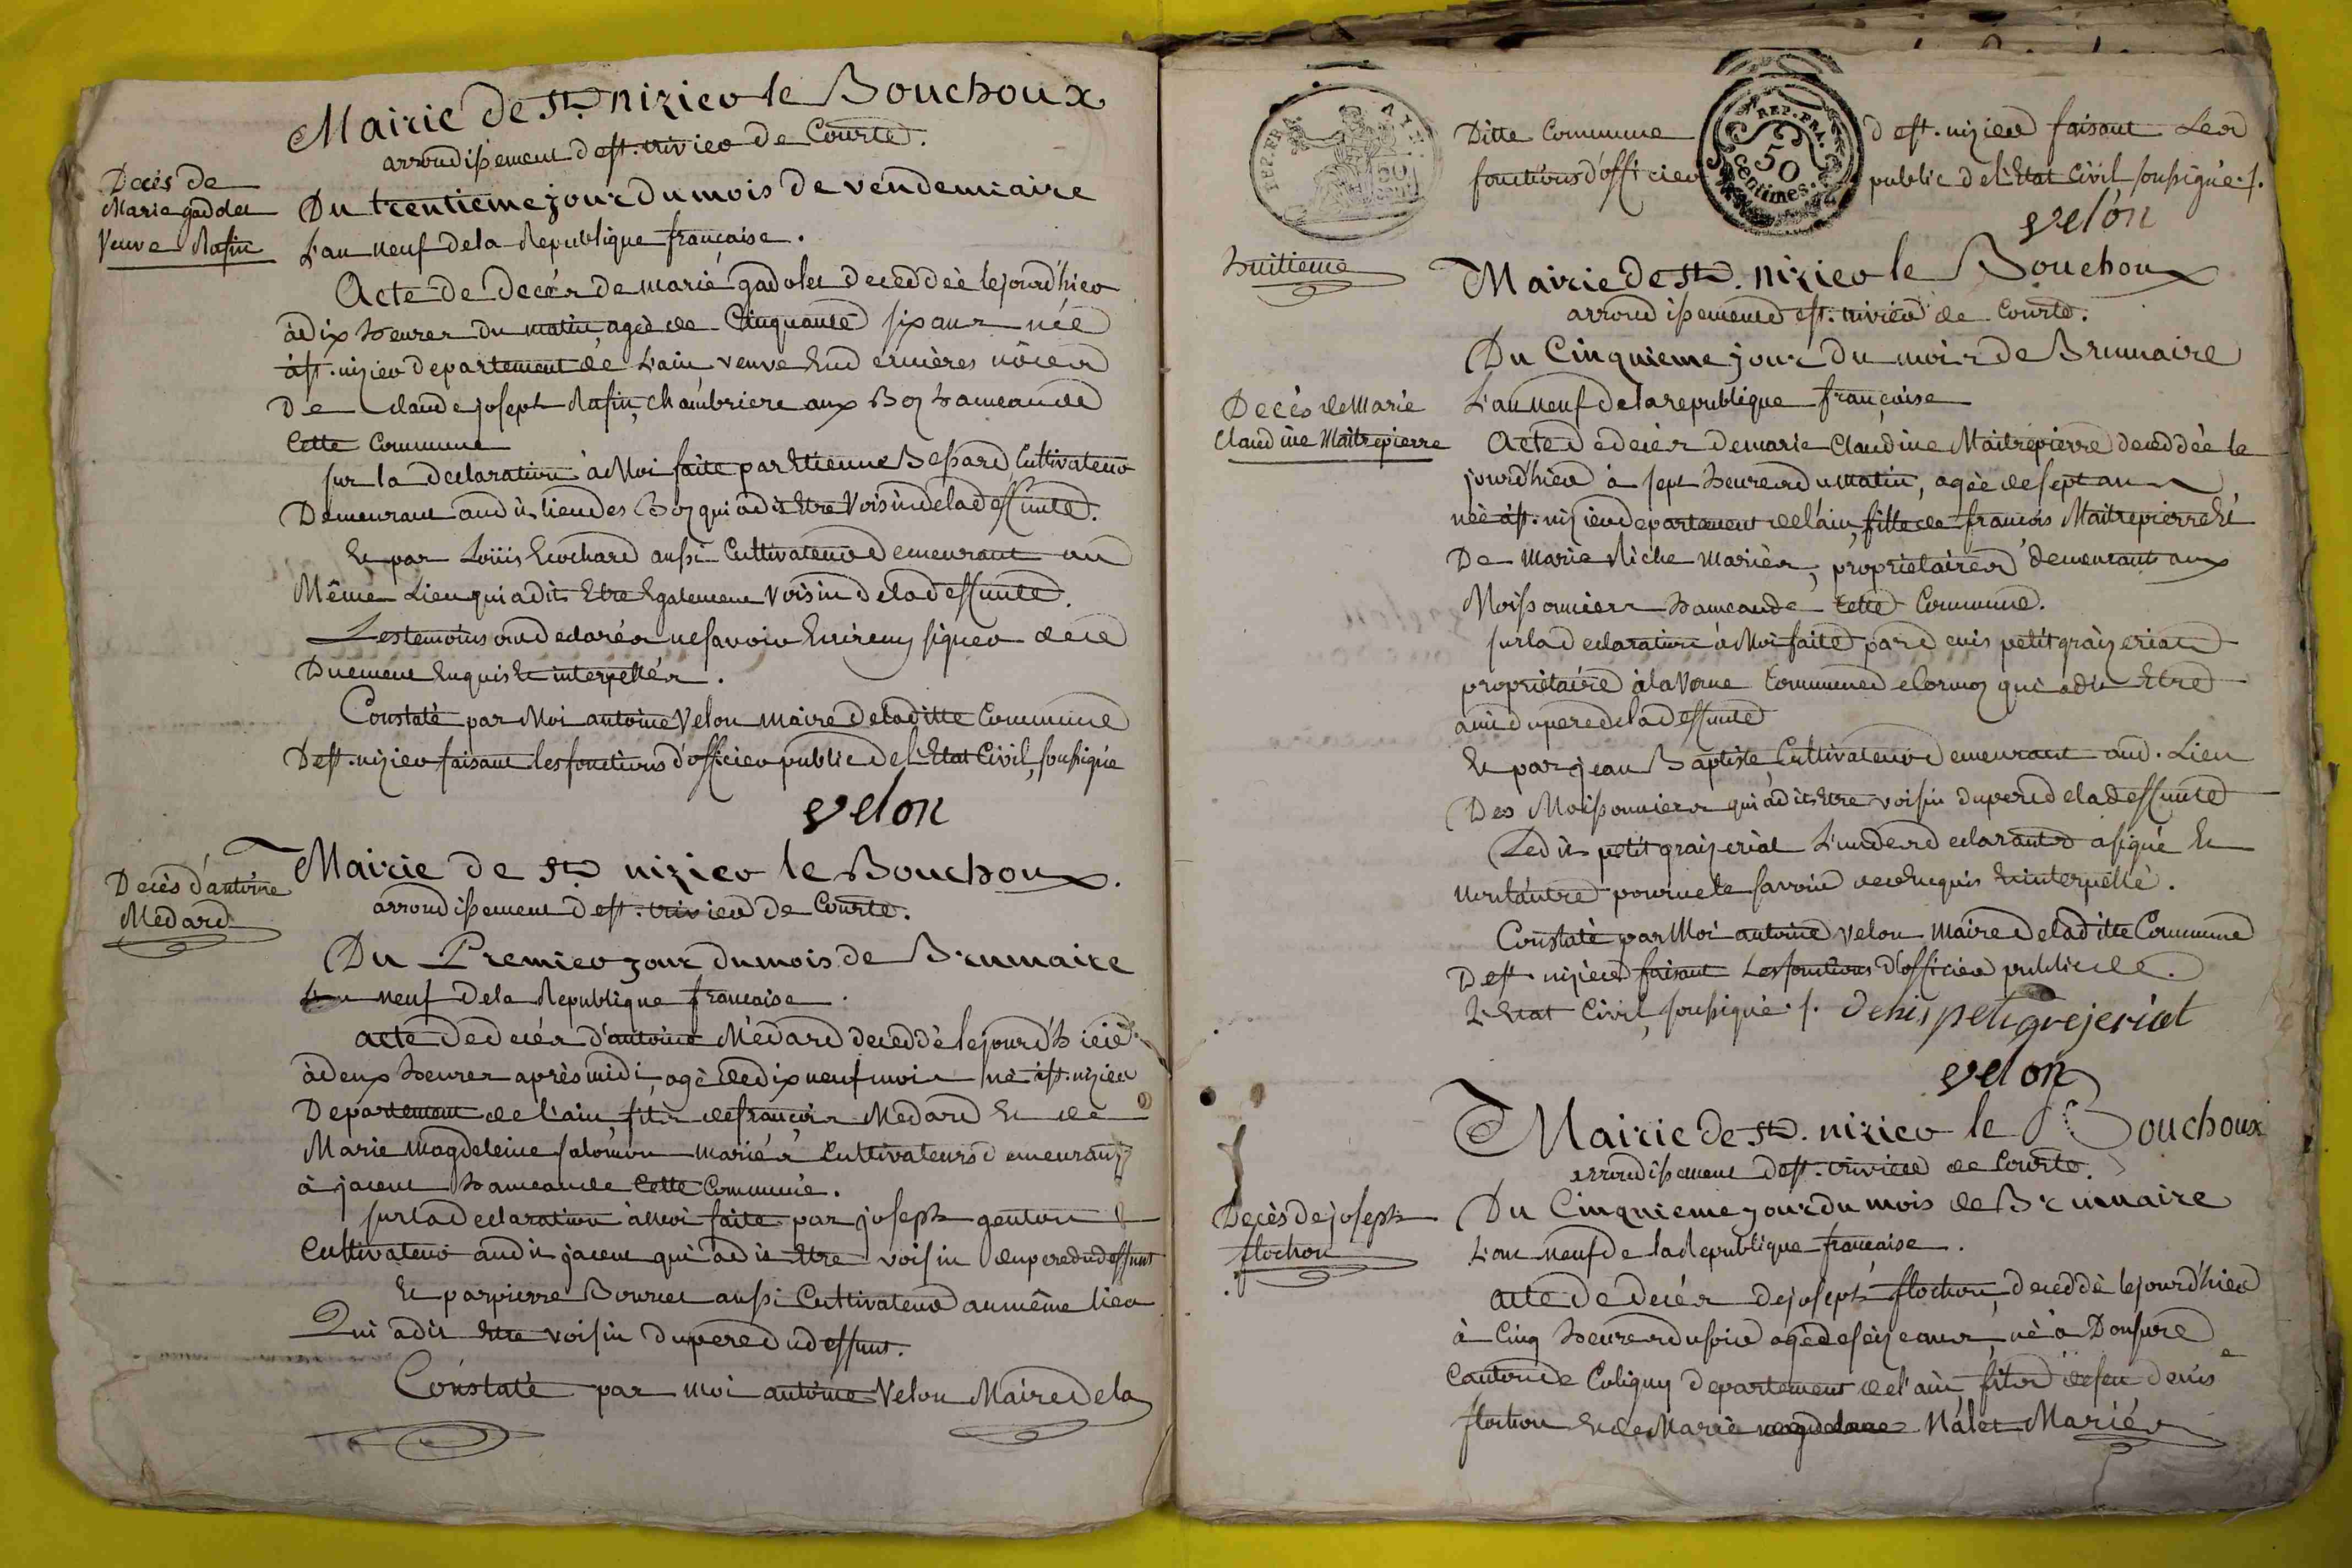 Mairie de St. nizier le Bouchoux
arrondissement de st. trivier de Courte.
Décès de
Marie gadolet
Veuve Rafin
Du trentieme jour du mois de vendemiaire
L'an neuf de la Republique française.
Acte de decès de marie gadolet deceddèè le jourd'hier
à dix heures du matin, agée de Cinquante six ans née
à st. nizier departement de L'ain veuve En dernières nôces
De Claude joseph Rafin, chambriere aux Boz hameau de
Cette Commune
sur la declaration à Moi faite par Etienne Bessard Cultivateur
Demeurant audit lieu des Boz qui a dit Etre Voisin de la deffunte.
Et par Loüis Ecochard aussi Cultivateur demeurant au
Même Lieu qui a dit Etre Egalement Voisin de la deffunte.
Les temoins ont declarés ne savoir Ecrire ny signer de ce
Duement Enquis Et interpellés.
Constaté par Moi antoine Velon maire de laditte Commune
De st. nizier faisant les fonctions d'officier public de l'Etat Civil, soussigné
velon
Decès d'antoine
Medard
Mairie de St. nizier le Bouchoux.
arrondissement de st. trivier de Courte.
Du Premier jour du mois de Brumaire
L'an neuf de la Republique française.
acte de decés d'antoine Médard deceddè le jourd'hier
à deux heures après midi, agé de dix neuf mois né à st. nizier
Departement de l'ain, fils de françois Medard Et de
Marie Magdeleine salomon mariés Cultivateurs demeurant
à jacem hameau de Cette Commune.
sur la declaration à Moi faite par joseph genton
Cultivateur audit jacem qui a dit Etre voisin du pere du deffunt
Et par pierre Bourcet aussi Cultivateur au même lieu
Qui a dit Etre voisin du pere du deffunt.
Constaté par moi antoine Velon Maire de la
REP. FRA.
REP. FRA.
50
Centimes.
Ditte Commune de st. nizier faisant Les
fonctions d'officier public de l'Etat Civil soussigné./.
velon
huitieme
Mairie de St. nizier le Bouchoux
arrondissement de st. trivier de Courte.
Du Cinquieme jour du mois de Brumaire
L'an neuf de la republique française
Decès de Marie
Claudine Maitrepierre
Acte de decès de marie Claudine Maitrepierre deceddée le
jourd'hier à sept heures du matin, agée de sept ans
née à st. nizier departement de l'ain, fille de françois Maitrepierre Et
De Marie Niche Mariés, proprietaires demeurants aux
Moissonniers hameau de Cette Commune.
sur la declaration à Moi faite par denis petit graizeriat
proprietaire à la Verne Commune de Cormoz qui a dit Etre
ami du pere de la deffunte
Et par jean Baptiste, Cultivateur demeurant aud. Lieu
Des Moissonniers qui a dit Etre voisin du pere de la deffunte
Ledit petit graizeriat L'un des declarants a signé Et
non l'autre pour ne le savoir de ce Enquis Et interpellé.
Constaté par Moi antoine Velon Maire de laditte Commune
De st. nizier faisant Les fonctions d'officier public de
L'Etat Civil, soussigné./. denis petigrejeriat
velon
Mairie de St. nizier le Bouchoux
arrondissement de st. trivier de Courte.
Decès de joseph
flochon
Du Cinquieme jour du mois de Brumaire
L'an neuf de la Republique française.
acte de decés de joseph flochon, deceddè le jourd'hier
à Cinq heures du soir agé de seize ans, né à Domsure
Canton de Coligny departement de l'ain, fils de feu denis
flochon Et de Marie magdelaine Nalet Mariés